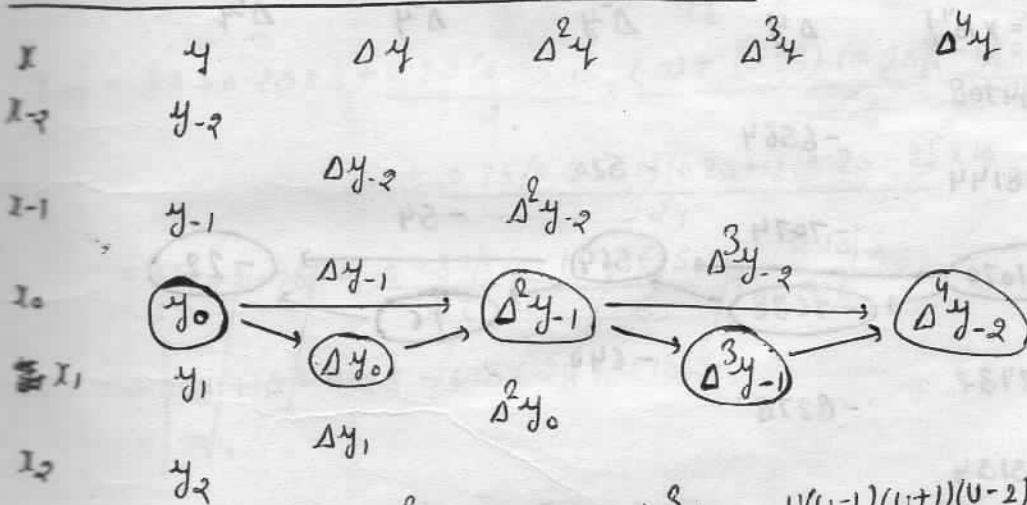 x y Δy Δ²y Δ³y Δ⁴y
x-2 y-2
Δy-2
x-1 y-1 Δ²y-2
Δy-1 Δ³y-2
x0 y0 Δ²y-1 Δ⁴y-2
Δy0 Δ³y-1
x1 y1 Δ²y0
Δy1
x2 y2
u(u-1)(u+1)(u-2)